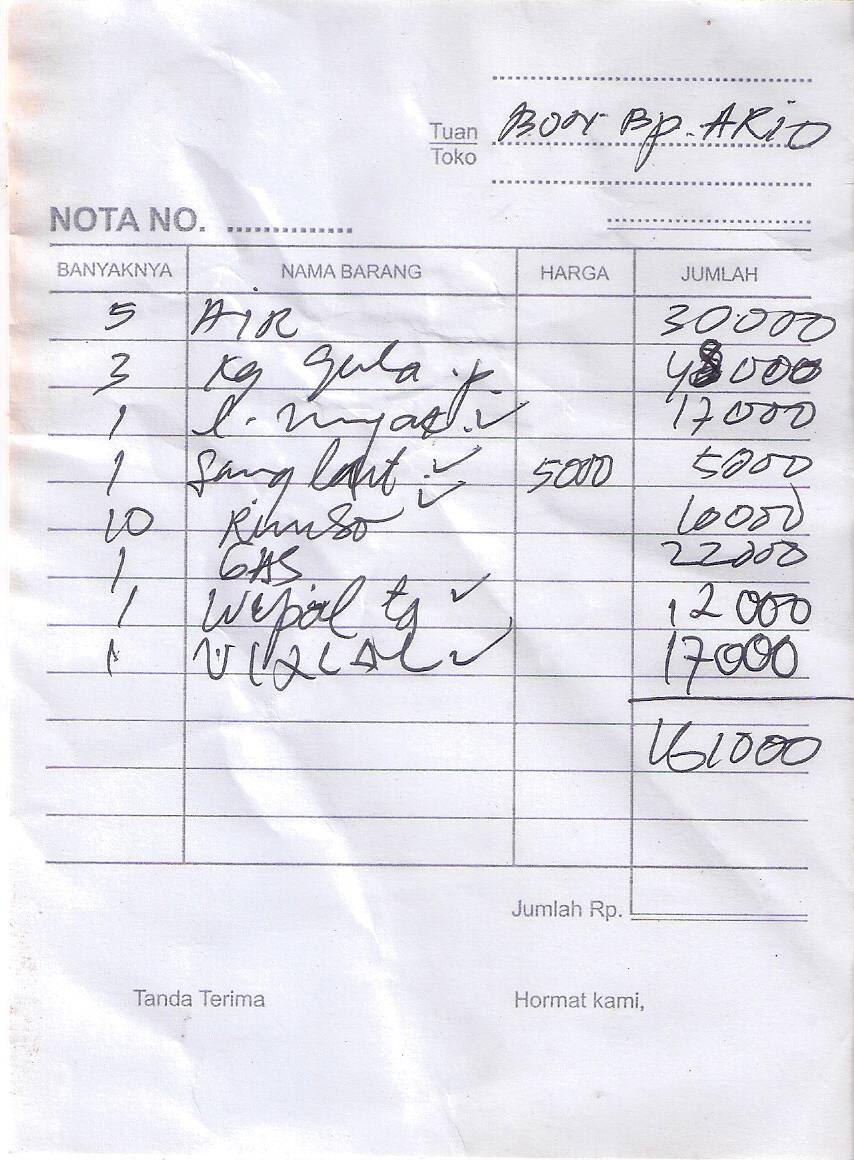 Tuan Bon Bp. ARIO
Toko
NOTA NO. ................
BANYAKNYA NAMA BARANG HARGA JUMLAH
5 AIR 30000
3 Kg gula 48000
1 17000
1 Sang laut 5000 5000
10 Rinso 10000
1 GAS 22000
1 Wipol 12000
1 17000
161000
Jumlah Rp.
Tanda Terima Hormat kami,